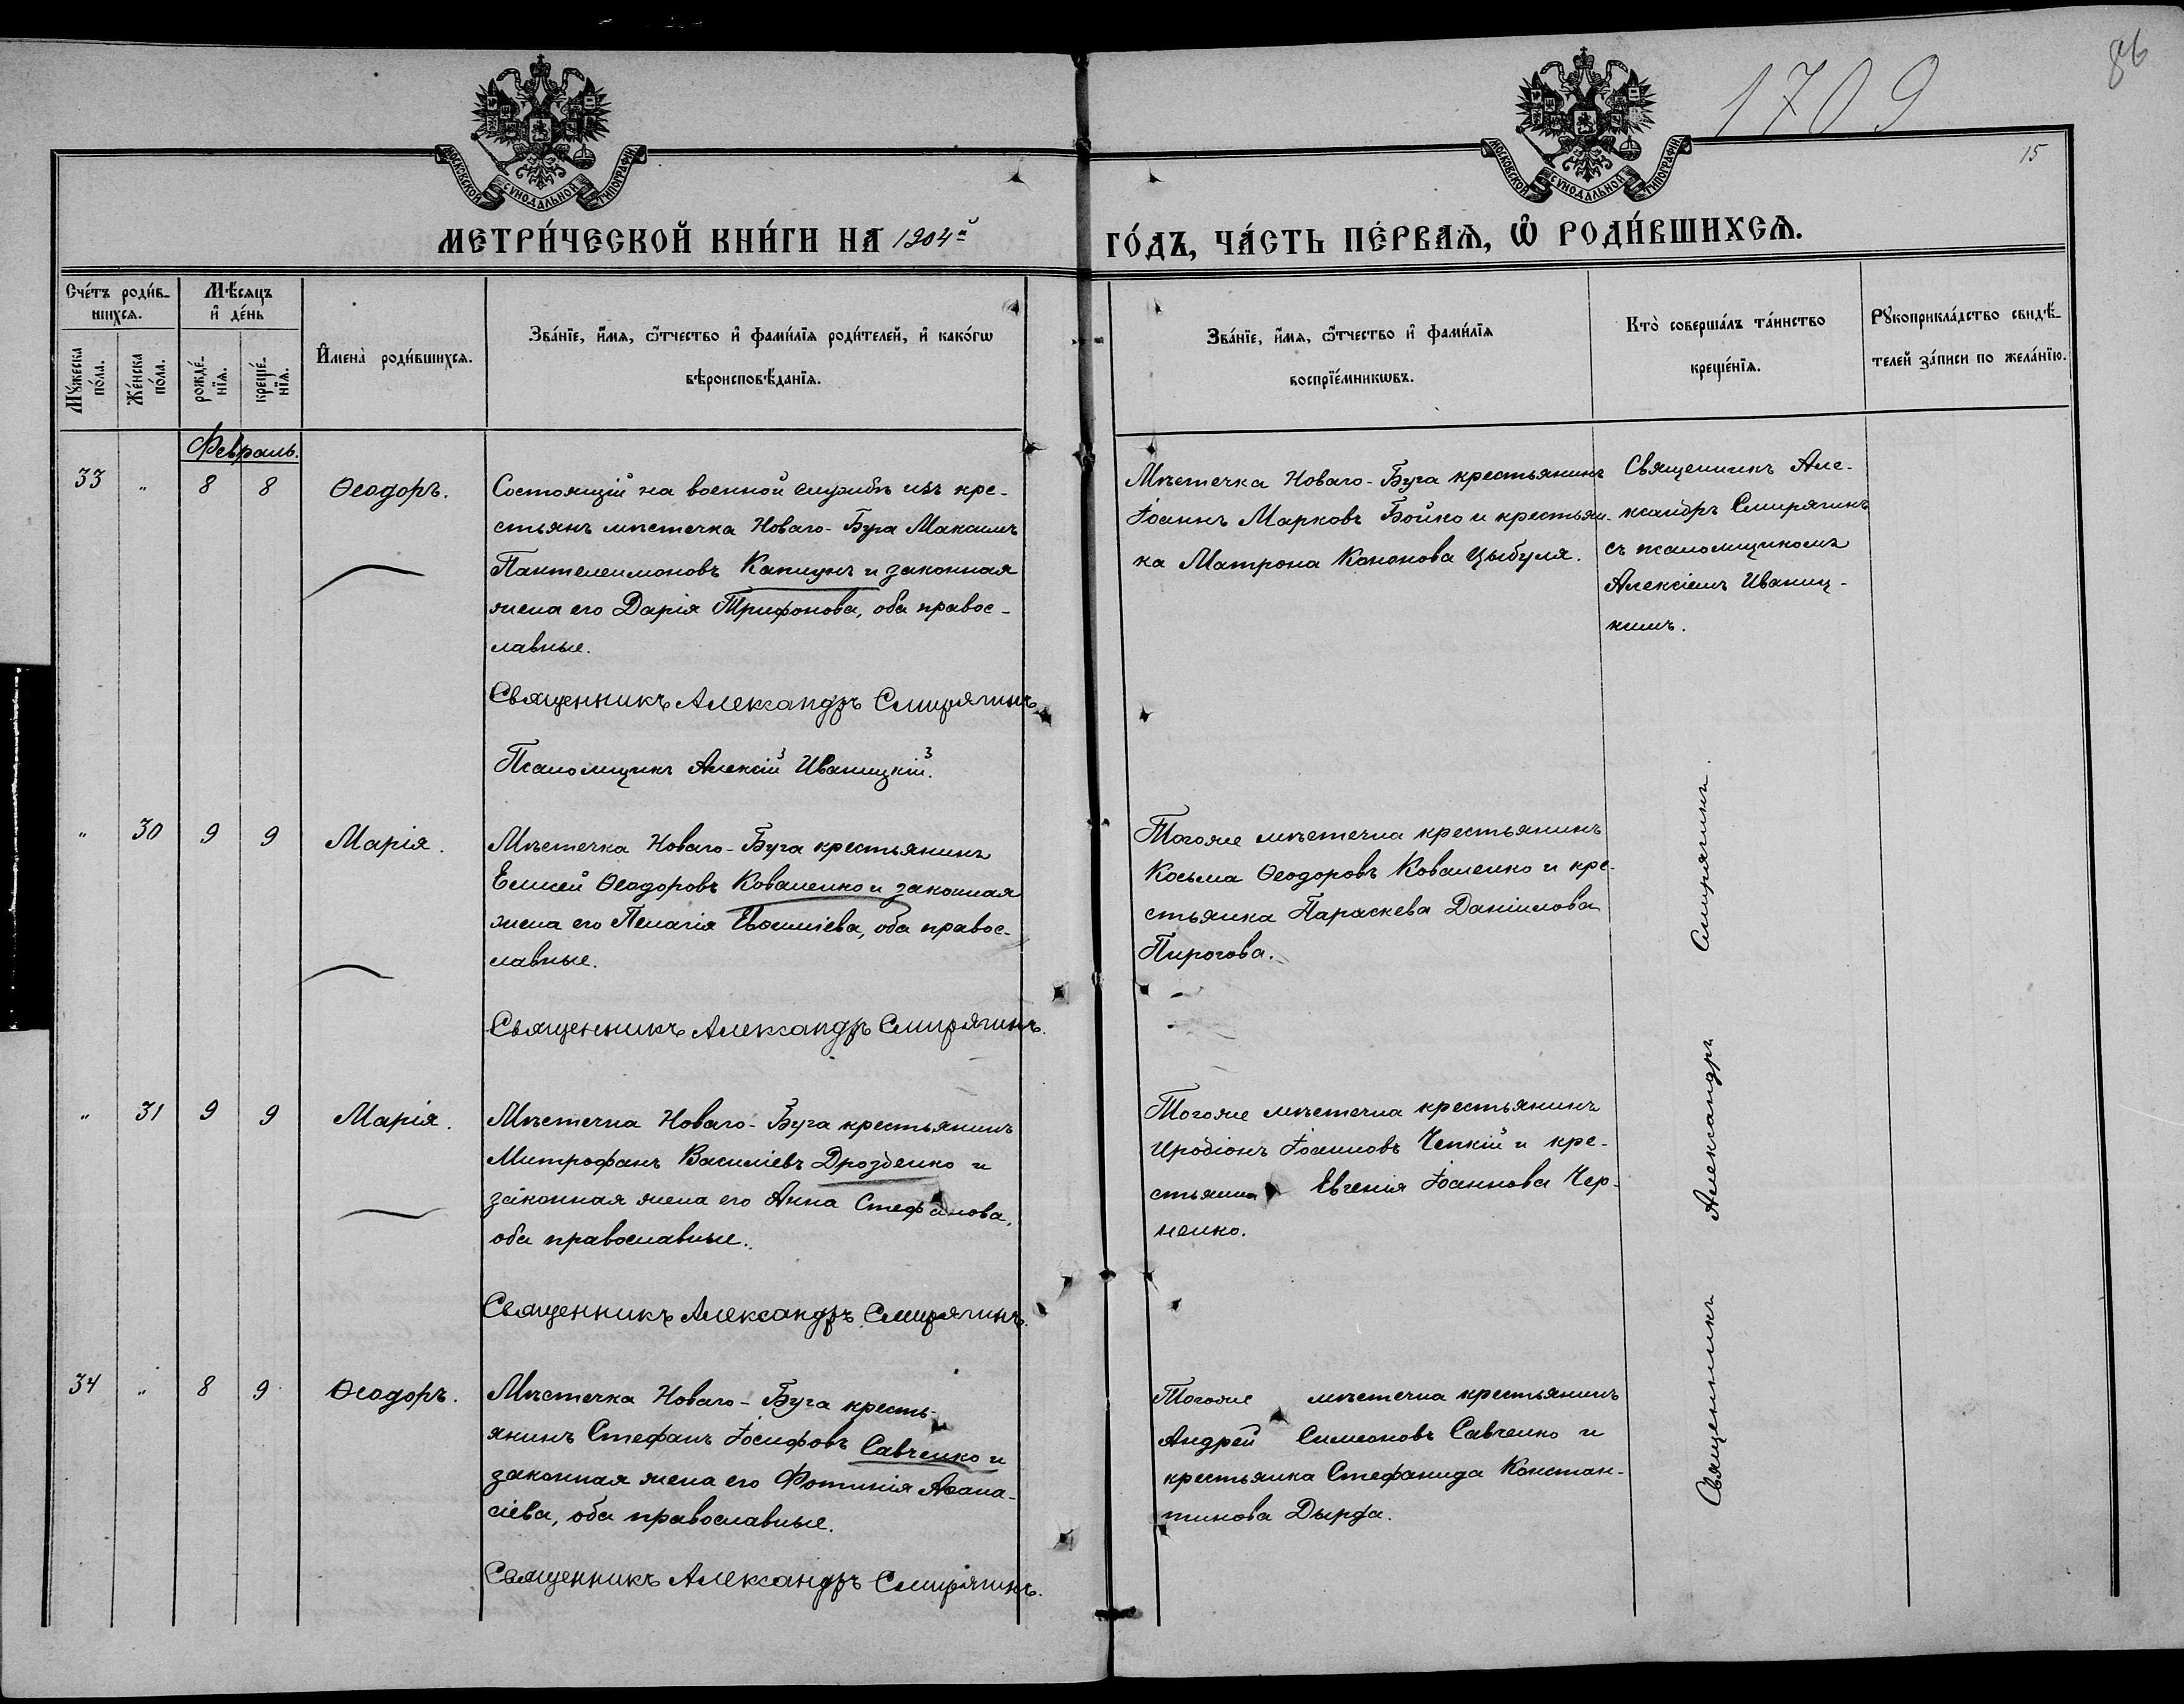 1709
86
15
МОСКОВСКОЙ СУНОДАЛЬНОЙ ТИПОГРАФІИ
МОСКОВСКОЙ СУНОДАЛЬНОЙ ТИПОГРАФІИ
МЕТРИ́ЧЕСКОЙ КНИ́ГИ НА 1904й
ГО́ДЪ, ЧА́СТЬ ПЕ́РВАѦ, Ѡ҆ РОДИ́ВШИХСѦ.
Сче́тъ роди́в-
шихсѧ.
Мꙋ́жеска по́ла.
Же́нска по́ла.
Мѣ́сѧцъ и҆ де́нь
рожде́-нїѧ.
креще́-нїѧ.
И҆мена̀ роди́вшихсѧ.
Зва́нїе, и҆́мѧ, ѻ҆́тчество и҆ фами́лїѧ роди́телей, и҆ како́гѡ
вѣроисповѣ́данїѧ.
Зва́нїе, и҆́мѧ, ѻ҆́тчество и҆ фами́лїѧ
воспрїе́мникѡвъ.
Кто̀ соверша́лъ та́инство
креще́нїѧ.
Рꙋкоприкла́дство свидѣ́-
телей за́писи по жела́нїю.
Февраль.
33 " 8 8 Ѳеодоръ.
Состоящій на военной службѣ изъ кре-
стьянъ мѣстечка Новаго-Буга Максимъ
Пантелеимоновъ Капшунъ и законная
жена его Дарія Трифонова, оба правос-
лавные.
Священникъ Александръ Смирягинъ
Псаломщикъ Алексій Иваницкій.
Мѣстечка Новаго-Буга крестьянинъ
Іоаннъ Марковъ Бойко и крестьян-
ка Матрона Кононова Цыбуля.
Священникъ Але-
ксандръ Смирягинъ
съ псаломщикомъ
Алексіемъ Иваниц-
кимъ.
" 30 9 9 Марія.
Мѣстечка Новаго-Буга крестьянинъ
Елисей Ѳеодоровъ Коваленко и законная
жена его Пелагія Евѳиміева, оба правос-
лавные.
Священникъ Александръ Смирягинъ.
Тогоже мѣстечка крестьянинъ
Косьма Ѳеодоровъ Коваленко и кре-
стьянка Параскева Даніилова
Пирогова.
" 31 9 9 Марія.
Мѣстечка Новаго-Буга крестьянинъ
Митрофанъ Василіевъ Дрозденко и
законная жена его Анна Стефанова,
оба православные.
Священникъ Александръ Смирягинъ.
Тогоже мѣстечка крестьянинъ
Иродіонъ Іоанновъ Чепкій и кре-
стьянка Евгенія Іоаннова Чер-
ненко.
34 " 8 9 Ѳеодоръ.
Мѣстечка Новаго-Буга кресть-
янинъ Стефанъ Іосифовъ Савченко и
законная жена его Фотинія Аѳана-
сіева, оба православные.
Священникъ Александръ Смирягинъ.
Тогоже мѣстечка крестьянинъ
Андрей Симеоновъ Савченко и
крестьянка Стефанида Констан-
тинова Дырда.
Священникъ Александръ Смирягинъ.